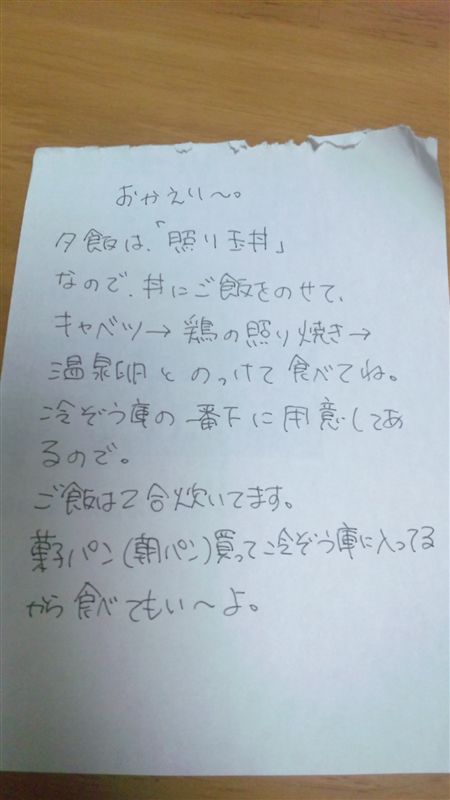 おかえり〜。
夕飯は、「照り玉丼」
なので、丼にご飯をのせて、
キャベツ→鶏の照り焼き→
温泉卵とのっけて食べてね。
冷ぞう庫の一番下に用意してあ
るので。
ご飯は2合炊いてます。
菓子パン(朝パン)買って冷ぞう庫に入ってる
から食べてもい〜よ。